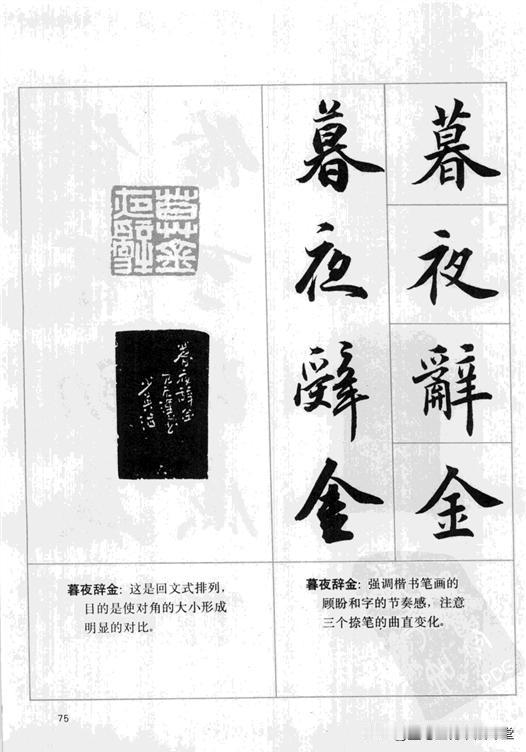 暮
夜
辭
金
暮
夜
辭
金
暮夜辞金
暮夜辞金: 强调楷书笔画的
顾盼和字的节奏感, 注意
三个捺笔的曲直变化。
暮夜辞金: 这是回文式排列,
目的是使对角的大小形成
明显的对比。
75